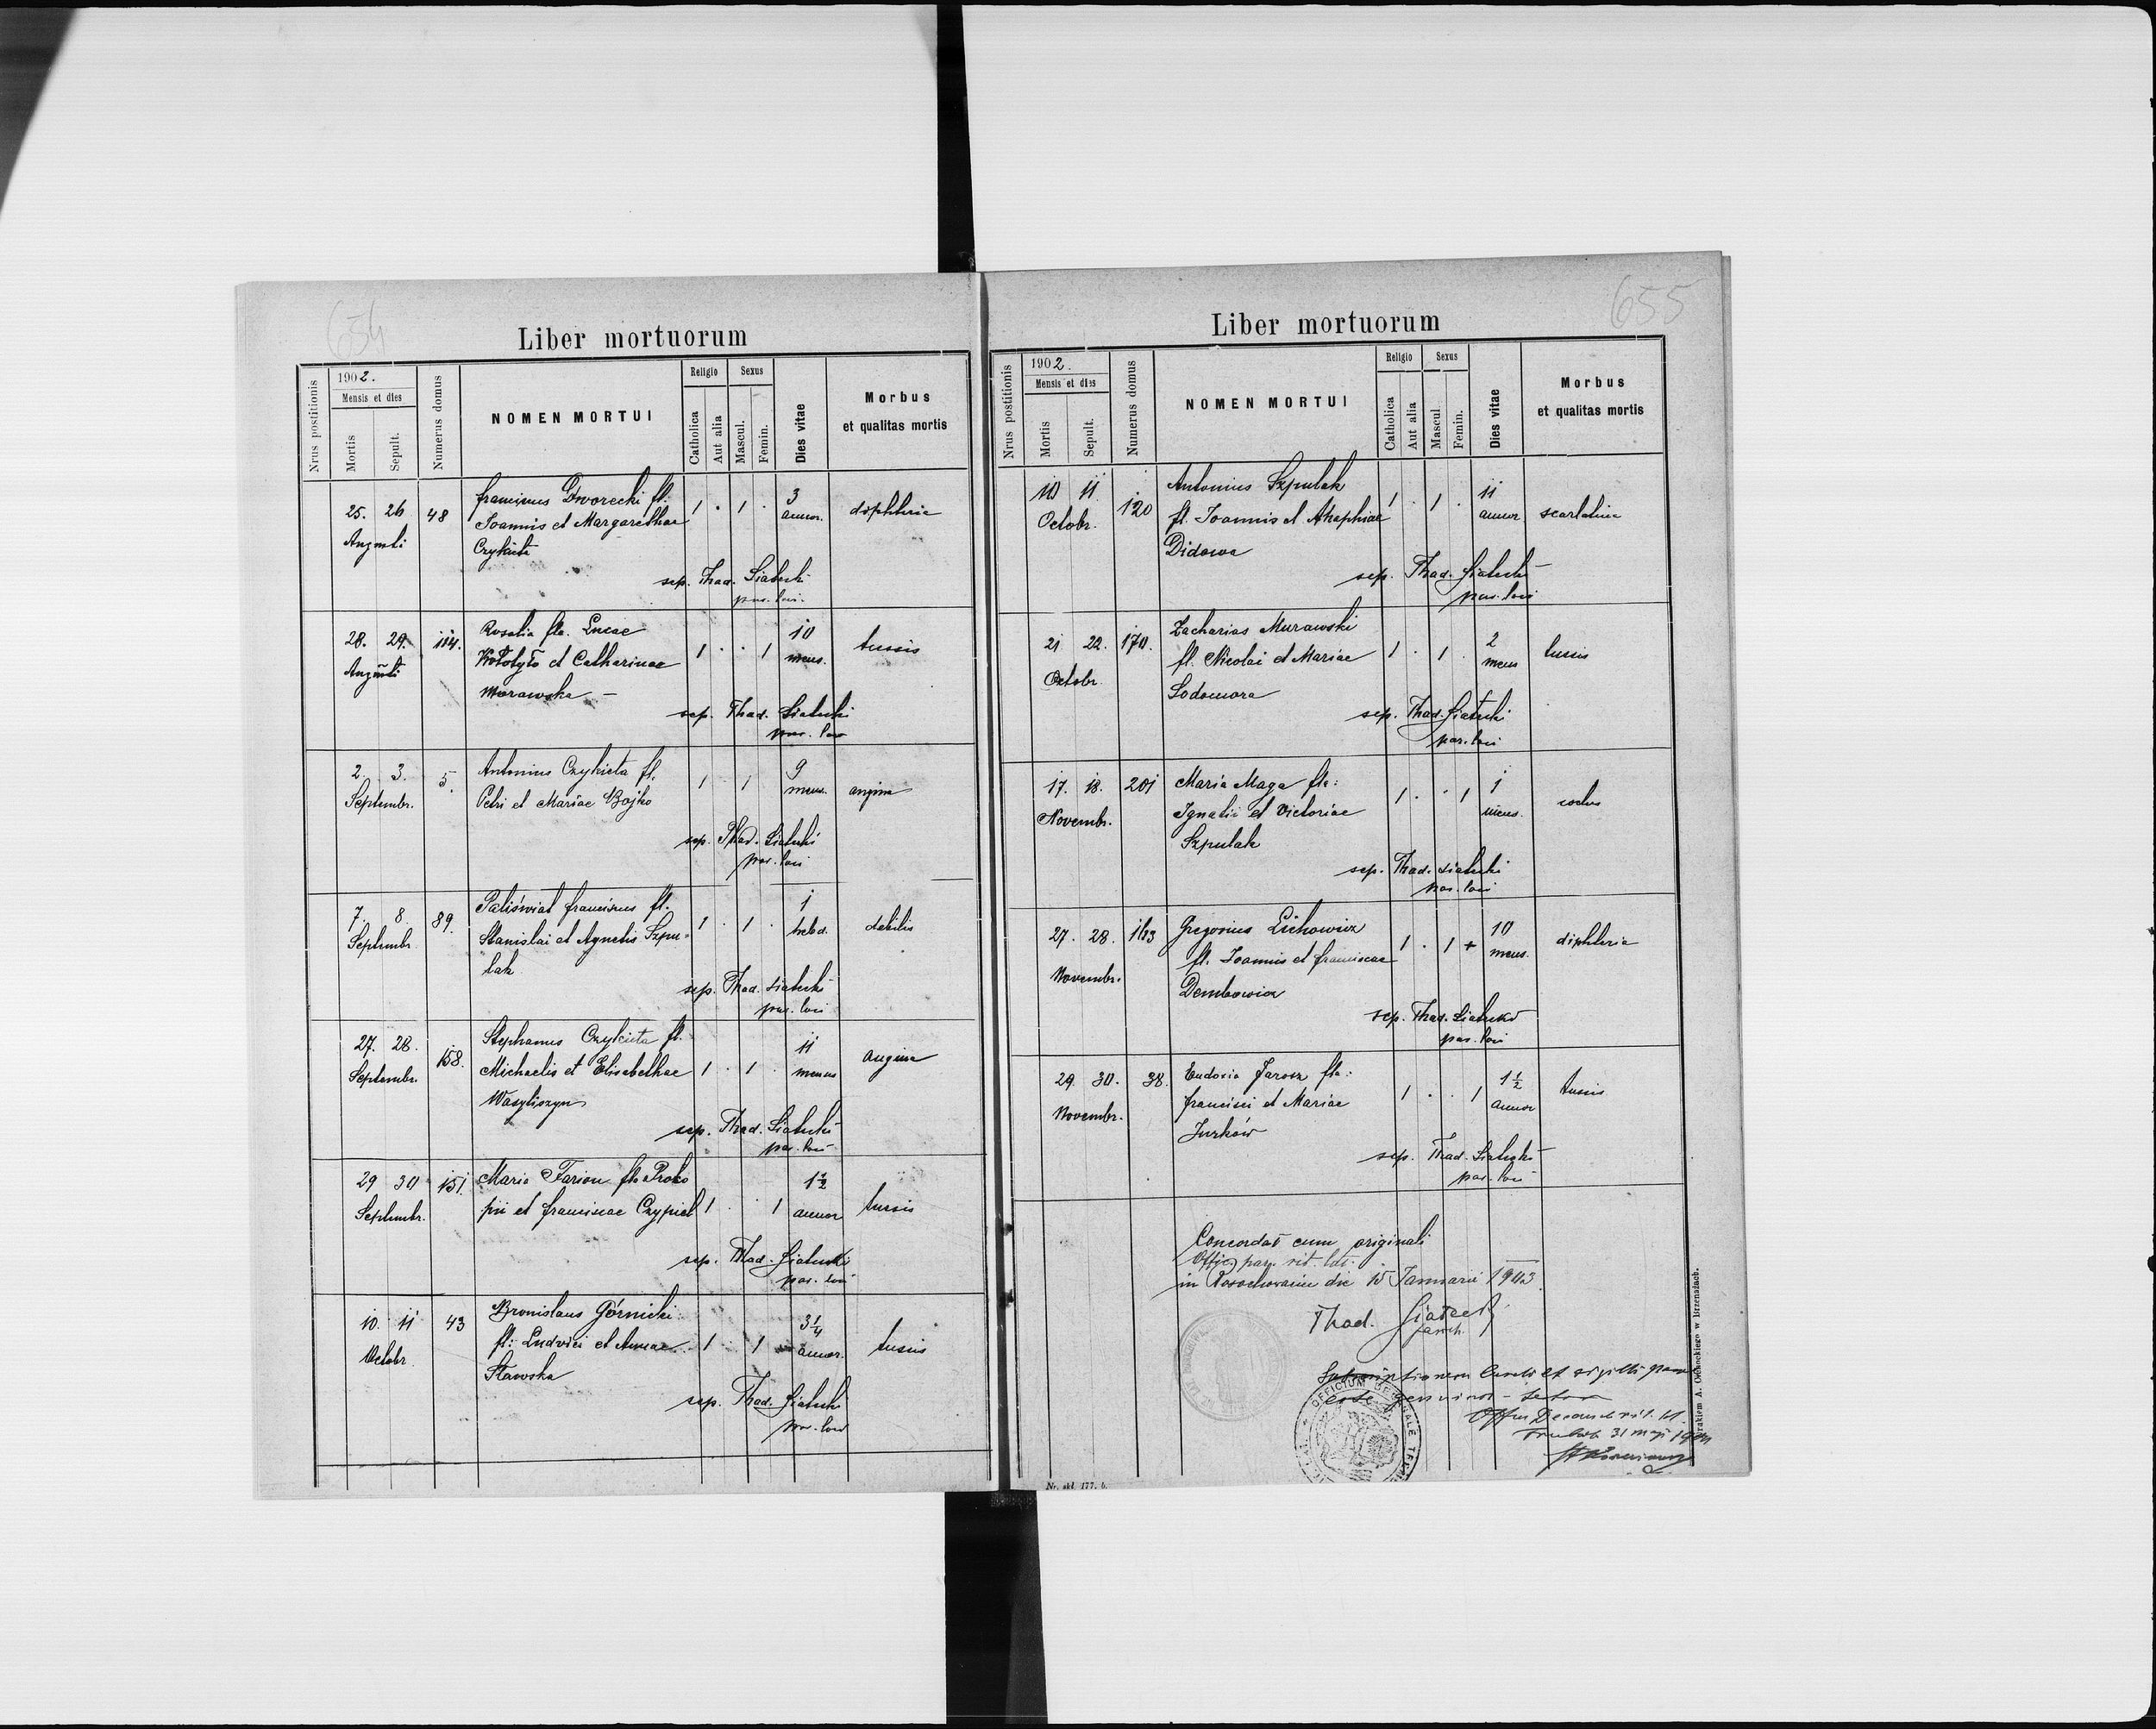 654
Liber mortuorum
Nrus postitionis
1902.
Mensis et dies
Mortis
Sepult.
Numerus domus
NOMEN MORTUI
Religio
Catholica
Aut alia
Sexus
Mascul.
Femin.
Dies vitae
Morbus
et qualitas mortis
25. 26 48 franciscus Dworecki fl. 1 . 1 . 3 diphteria
Augusti Joannis et Margarethae annor.
Czykieta
sep. Thad. Siatecki
par. loci
28. 29. 114. Rosalia fla. Lucae 1 . . 1 10 tussis
Augusti Kołotyło et Catharinae mens.
Morawska
sep. Thad. Siatecki
par. loci
2. 3. 5. Antonius Czykieta fl. 1 . 1 9 angina
Septembr. Petri et Mariae Bojko mens.
sep. Thad. Siatecki
par. loci
7. 8. 89. Paliświat franciscus fl. 1 . 1 . 1 debilis
Septembr. Stanislai et Agnetis Szpu= hebd.
lak
sep. Thad. Siatecki
par. loci
27. 28. 158. Stephanus Czykieta fl. 1 . 1 . 11 angina
Septembr. Michaelis et Elisabethae mens
Wasyliszyn
sep. Thad. Siatecki
par. loci
29 30 151. Maria Farion fla Proko 1 . 1 1 1/2 tussis
Septembr. pii et franciscae Czypiel annor
sep. Thad. Siatecki
par. loci
10. 11 43 Bronislaus Górnicki 1 . 1 3 1/4 tussis
Octobr fl: Ludvici et Annae annor.
Stawska
sep. Thad. Siatecki
par. loci
655
Liber mortuorum
Nrus postitionis
1902.
Mensis et dies
Mortis
Sepult.
Numerus domus
NOMEN MORTUI
Religio
Catholica
Aut alia
Sexus
Mascul.
Femin.
Dies vitae
Morbus
et qualitas mortis
10 11. 120 Antonius Szpulak 1 . 1 . 11 scarlatina
Octobr. fl. Joannis et Ahaphiae annor
Didowa
sep. Thad. Siatecki
par. loci
21 22. 170. Zacharias Murawski 1 . 1 . 2 tussis
Octobr. fl. Nicolai et Mariae mens
Sodomora
sep. Thad. Siatecki
par. loci
17. 18. 201 Maria Maga fla: 1 . . 1 1
Novembr. Ignatii et Victoriae mens.
Szpulak
sep. Thad. Siatecki
par. loci
27. 28. Gregorius Lichowicz 1 . 1 + 10 diphteria
Novembr. fl. Joannis et franciscae mens.
Dembowicz
sep. Thad. Siatecki
par. loci
29. 30. 38. Eudoxia Jarosz fla: 1 . . 1 1 1/2 tussis
Novembr. francisci et Mariae annor
Jurków
sep. Thad. Siatecki
par. loci
Concordat cum originali
Offic. par. rit. lat.
in die 15 Januarii 1903.
Thad. Siatecki
paroch.
OFFICIUM DECANALE
esse genuinas
31 maji
Drukiem A. Ochockiego w Brzeżanach.
Nr. skł. 177. b.